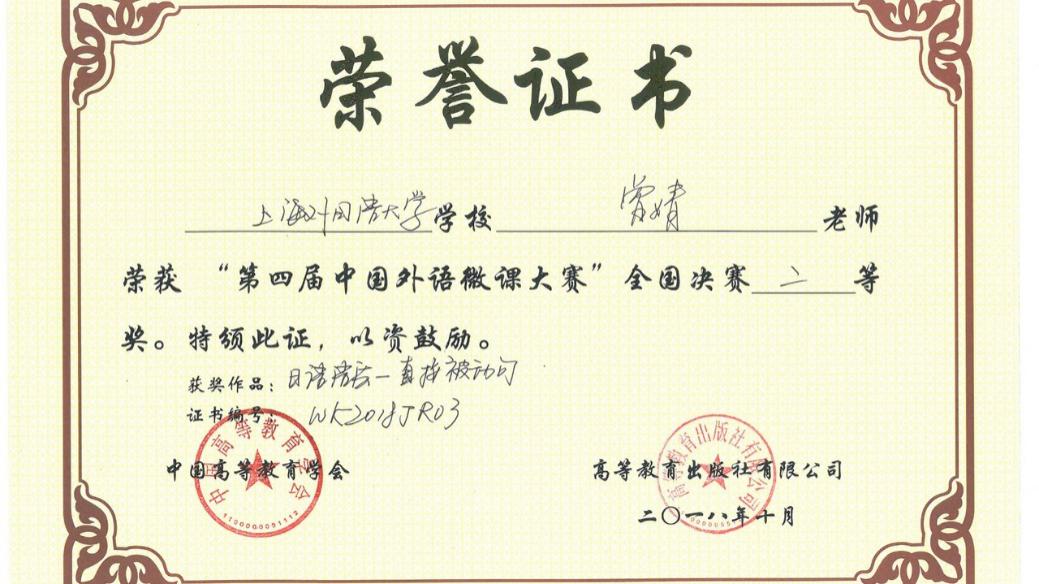 荣誉证书
上海外国语大学学校 曾婧 老师
荣获“第四届中国外语微课大赛”全国决赛二等
奖。特颁此证，以资鼓励。
获奖作品：日语语法—直接被动句
证书编号：WK2018JR03
中国高等教育学会 高等教育出版社有限公司
中国高等教育学会
1100000091112
高等教育出版社有限公司
二〇一八年十月